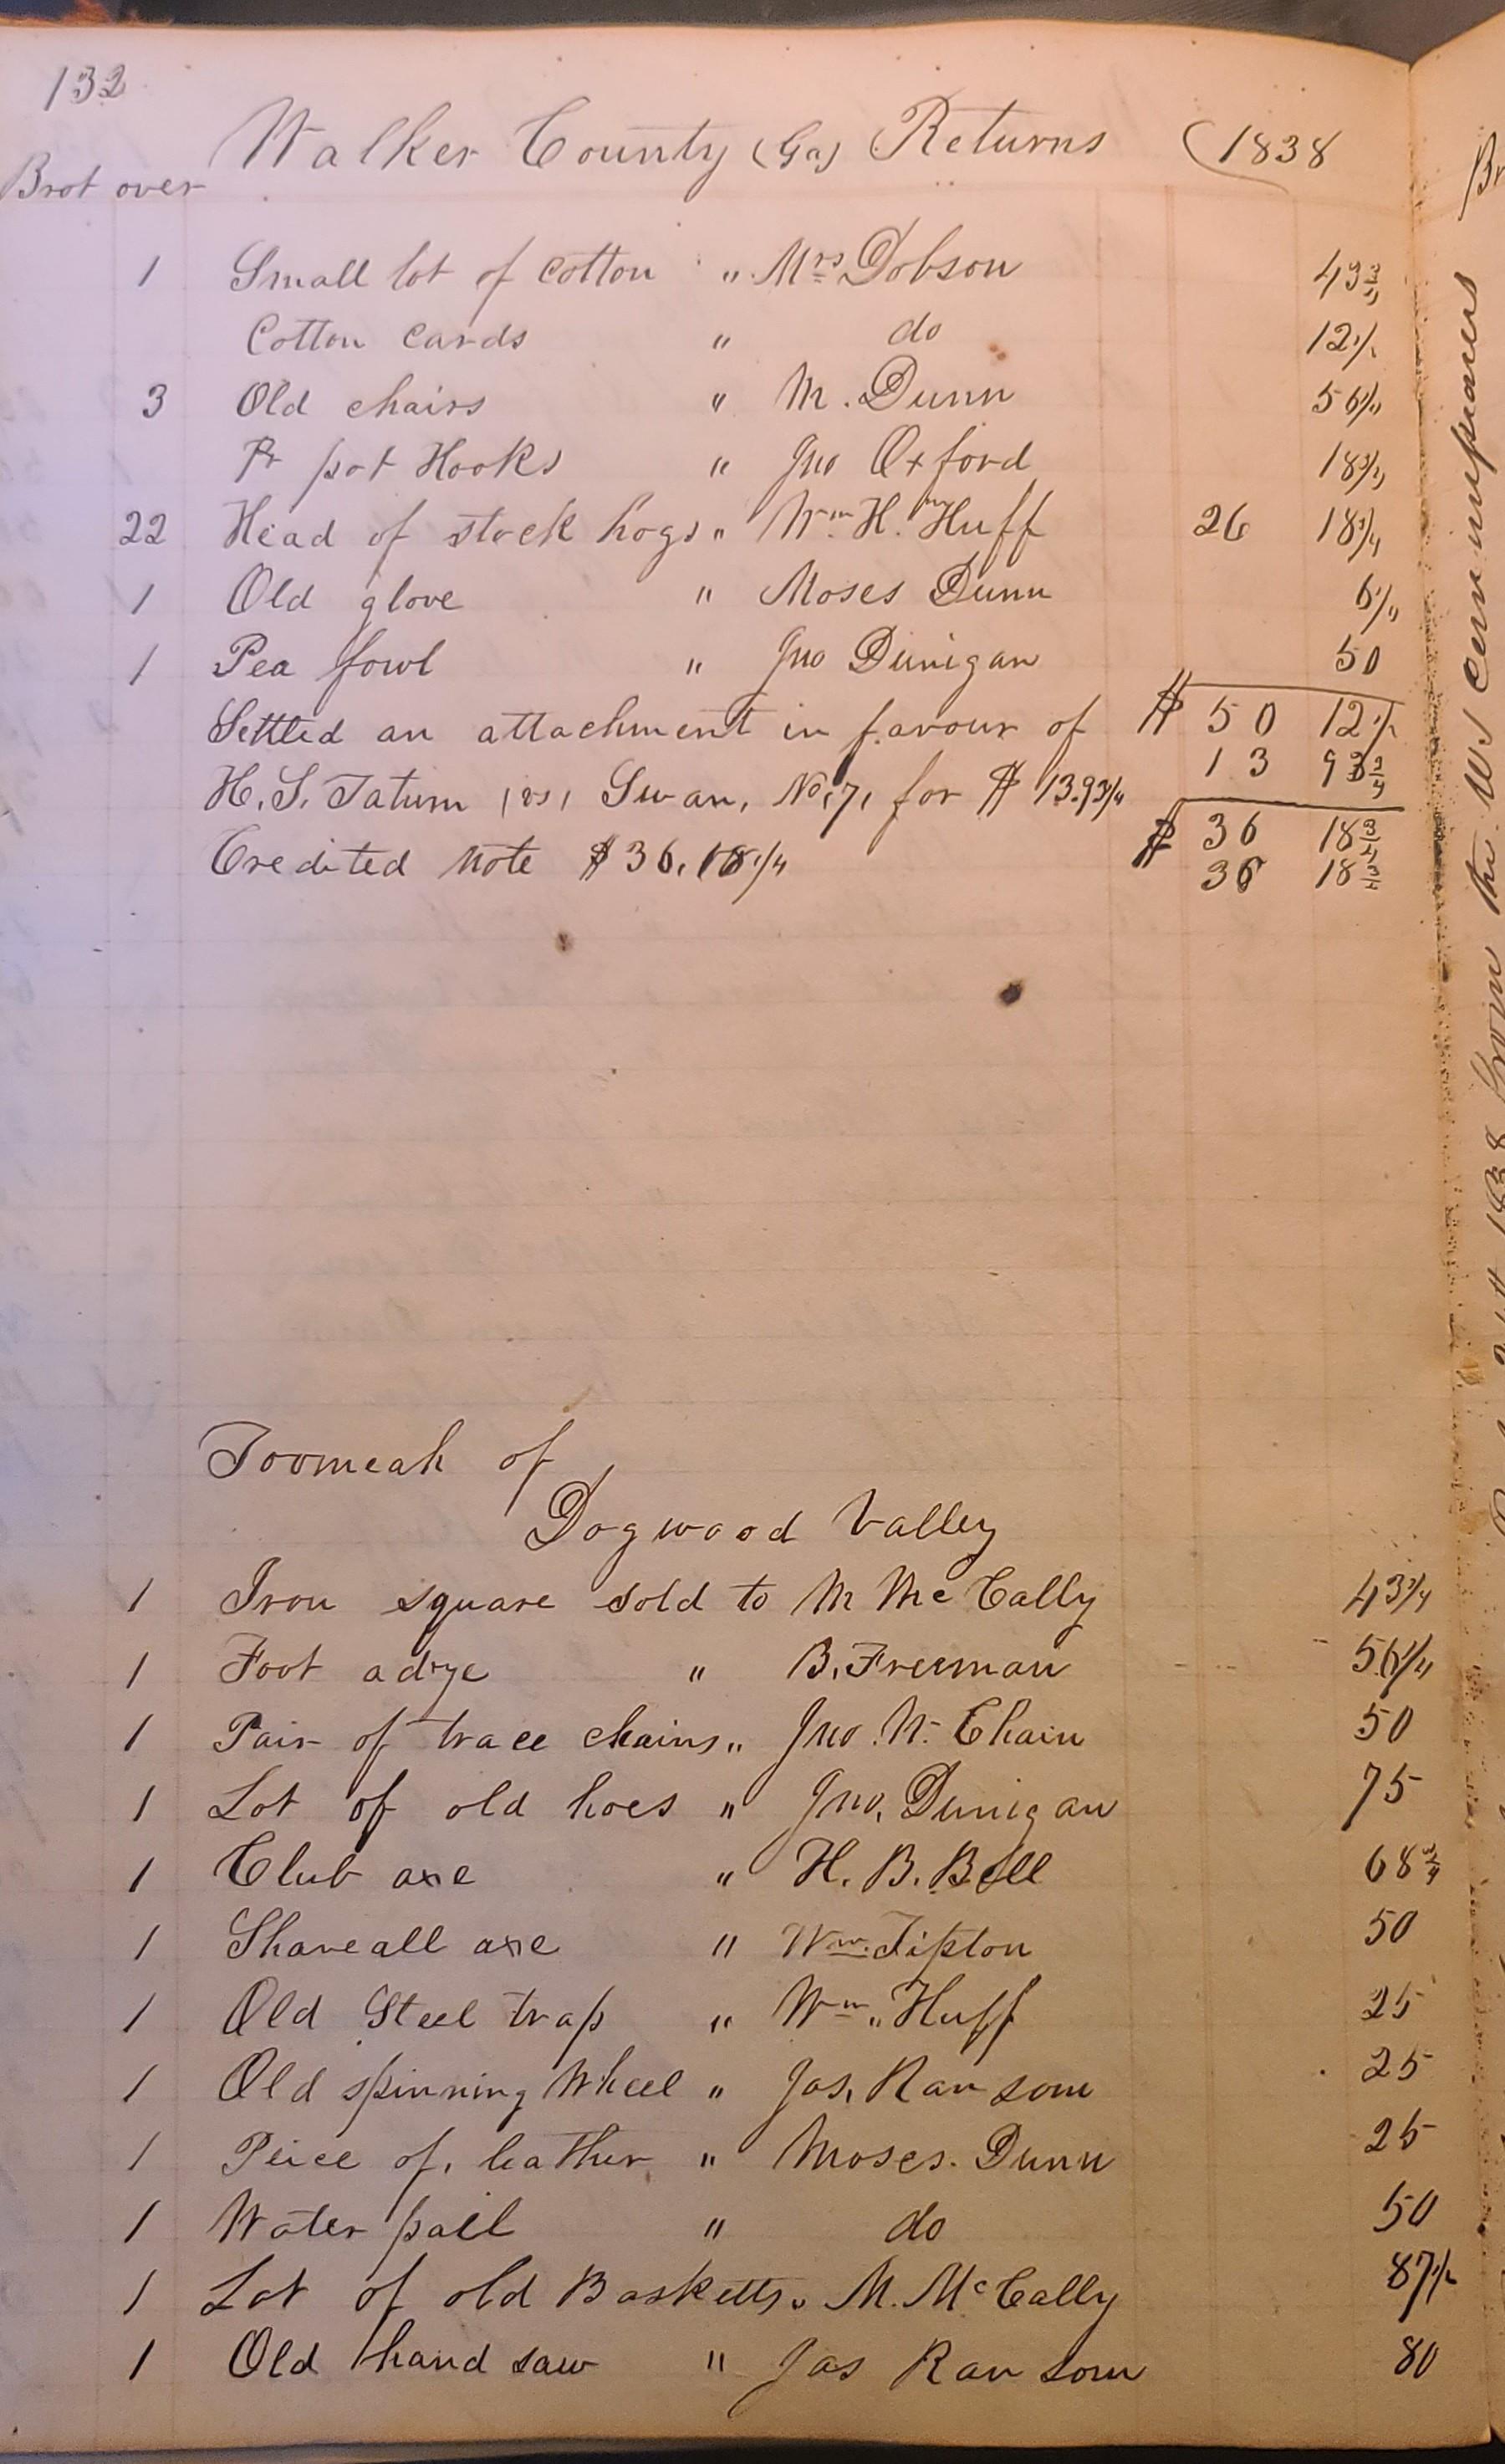 132
Walker County (Ga) Returns (1838
Brot over
1 Small lot of Cotton " Mrs Dobson 43 3/4
Cotton Cards " do 12 1/2
3 Old chairs " M. Dunn 56 1/4
Pr pot Hooks " Jno Oxford 18 3/4
22 Head of stock hogs " Wm H. Huff 26 18 3/4
1 Old glove " Moses Dunn 6 1/4
1 Pea fowl " Jno Dunigan 50
Settled an attachment in favour of $ 50 12 1/2
H. S. Tatum (vs) Swan, No, 7, for $ 13.93 3/4 13 93 3/4
$ 36 18 3/4
Credited Note $ 36.18 3/4 36 18 3/4
Toomeah of
Dogwood Valley
1 Iron square sold to M Mc Cally 43 3/4
1 Foot adze " B. Freeman 56 1/4
1 Pair of trace chains " Jno. W. Chain 50
1 Lot of old hoes " Jno. Dunigan 75
1 Club axe " H. B. Bell 68 3/4
1 Shareall axe " Wm. Tipton 50
1 Old Steel trap " Wm " Huff 25
1 Old spinning Wheel " Jas, Ransom 25
1 Peice of, leather " Moses. Dunn 25
1 Water pail " do 50
1 Lot of old Basketts " M. McCally 87 1/2
1 Old hand saw " Jas Ransom 80